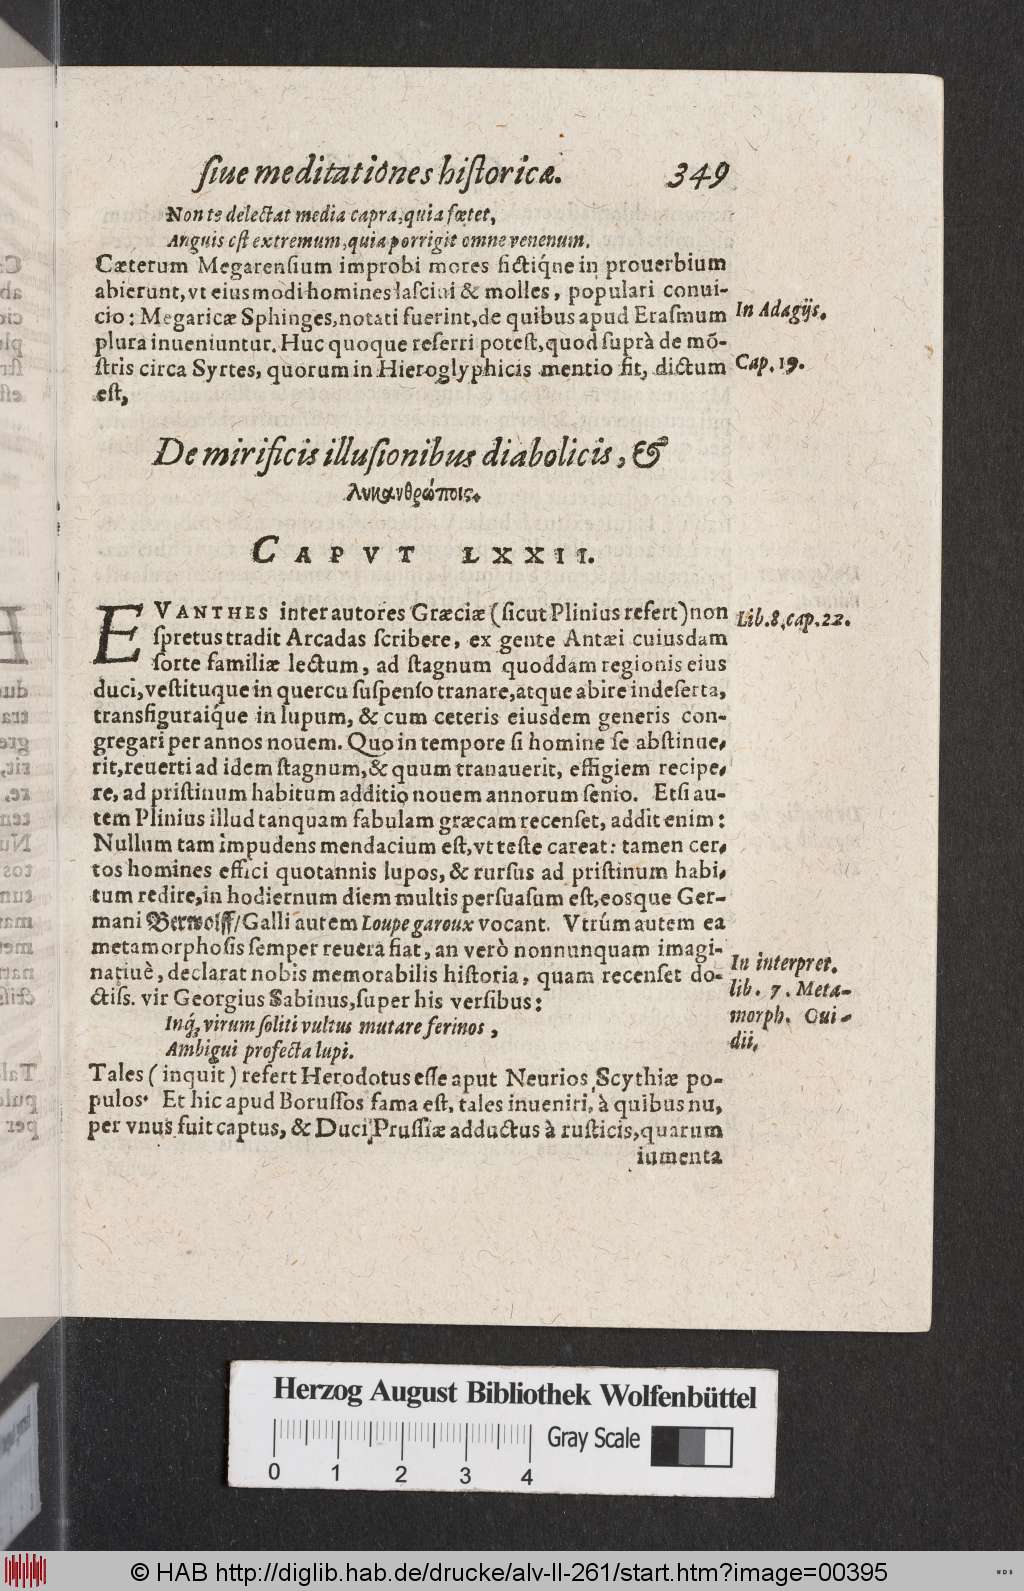 ſiue meditationes hiſtoricæ. 349
Non te delectat media capra, quia fœtet,
Anguis eſt extremum, quia porrigit omne venenum.
Cæterum Megarenſium improbi mores fictíque in prouerbium
abierunt, vt eiusmodi homines laſciui & molles, populari conui-
cio: Megaricæ Sphinges, notati fuerint, de quibus apud Eraſmum
In Adagijs.
plura inueniuntur. Huc quoque referri poteſt, quod ſuprà de mõ-
ſtris circa Syrtes, quorum in Hieroglyphicis mentio fit, dictum
Cap. 19.
eſt,
De mirificis illuſionibus diabolicis, &
λυκανθρώποις.
CAPVT LXXII.
EVANTHES inter autores Græciæ (ſicut Plinius refert) non
Lib. 8. cap. 22.
ſpretus tradit Arcadas ſcribere, ex gente Antæi cuiusdam
ſorte familiæ lectum, ad ſtagnum quoddam regionis eius
duci, veſtituque in quercu ſuſpenſo tranare, atque abire in deſerta,
transfiguraíque in lupum, & cum ceteris eiusdem generis con-
gregari per annos nouem. Quo in tempore ſi homine ſe abſtinue,
rit, reuerti ad idem ſtagnum, & quum tranauerit, effigiem recipe,
re, ad priſtinum habitum addito nouem annorum ſenio. Etſi au-
tem Plinius illud tanquam fabulam græcam recenſet, addit enim:
Nullum tam impudens mendacium eſt, vt teſte careat: tamen cer,
tos homines effici quotannis lupos, & rurſus ad priſtinum habi,
tum redire, in hodiernum diem multis perſuaſum eſt, eosque Ger-
mani Berwolff/ Galli autem Loupegaroux vocant. Vtrúm autem ea
metamorphoſis ſemper reuerà fiat, an verò nonnunquam imagi-
natiuè, declarat nobis memorabilis hiſtoria, quam recenſet do-
ctiſs. vir Georgius Sabinus, ſuper his verſibus:
In interpret.
lib. 7. Meta-
morph. Oui-
dii,
Inq́; virum ſoliti vultus mutare ferinos,
Ambigui profecta lupi.
Tales (inquit) refert Herodotus eſſe aput Neurios Scythiæ po-
pulos. Et hic apud Boruſſos fama eſt, tales inueniri, à quibus nu,
per vnus fuit captus, & Duci Pruſſiæ adductus à ruſticis, quarum
iumenta
Herzog August Bibliothek Wolfenbüttel
0 1 2 3 4
Gray Scale
© HAB http://diglib.hab.de/drucke/alv-ll-261/start.htm?image=00395